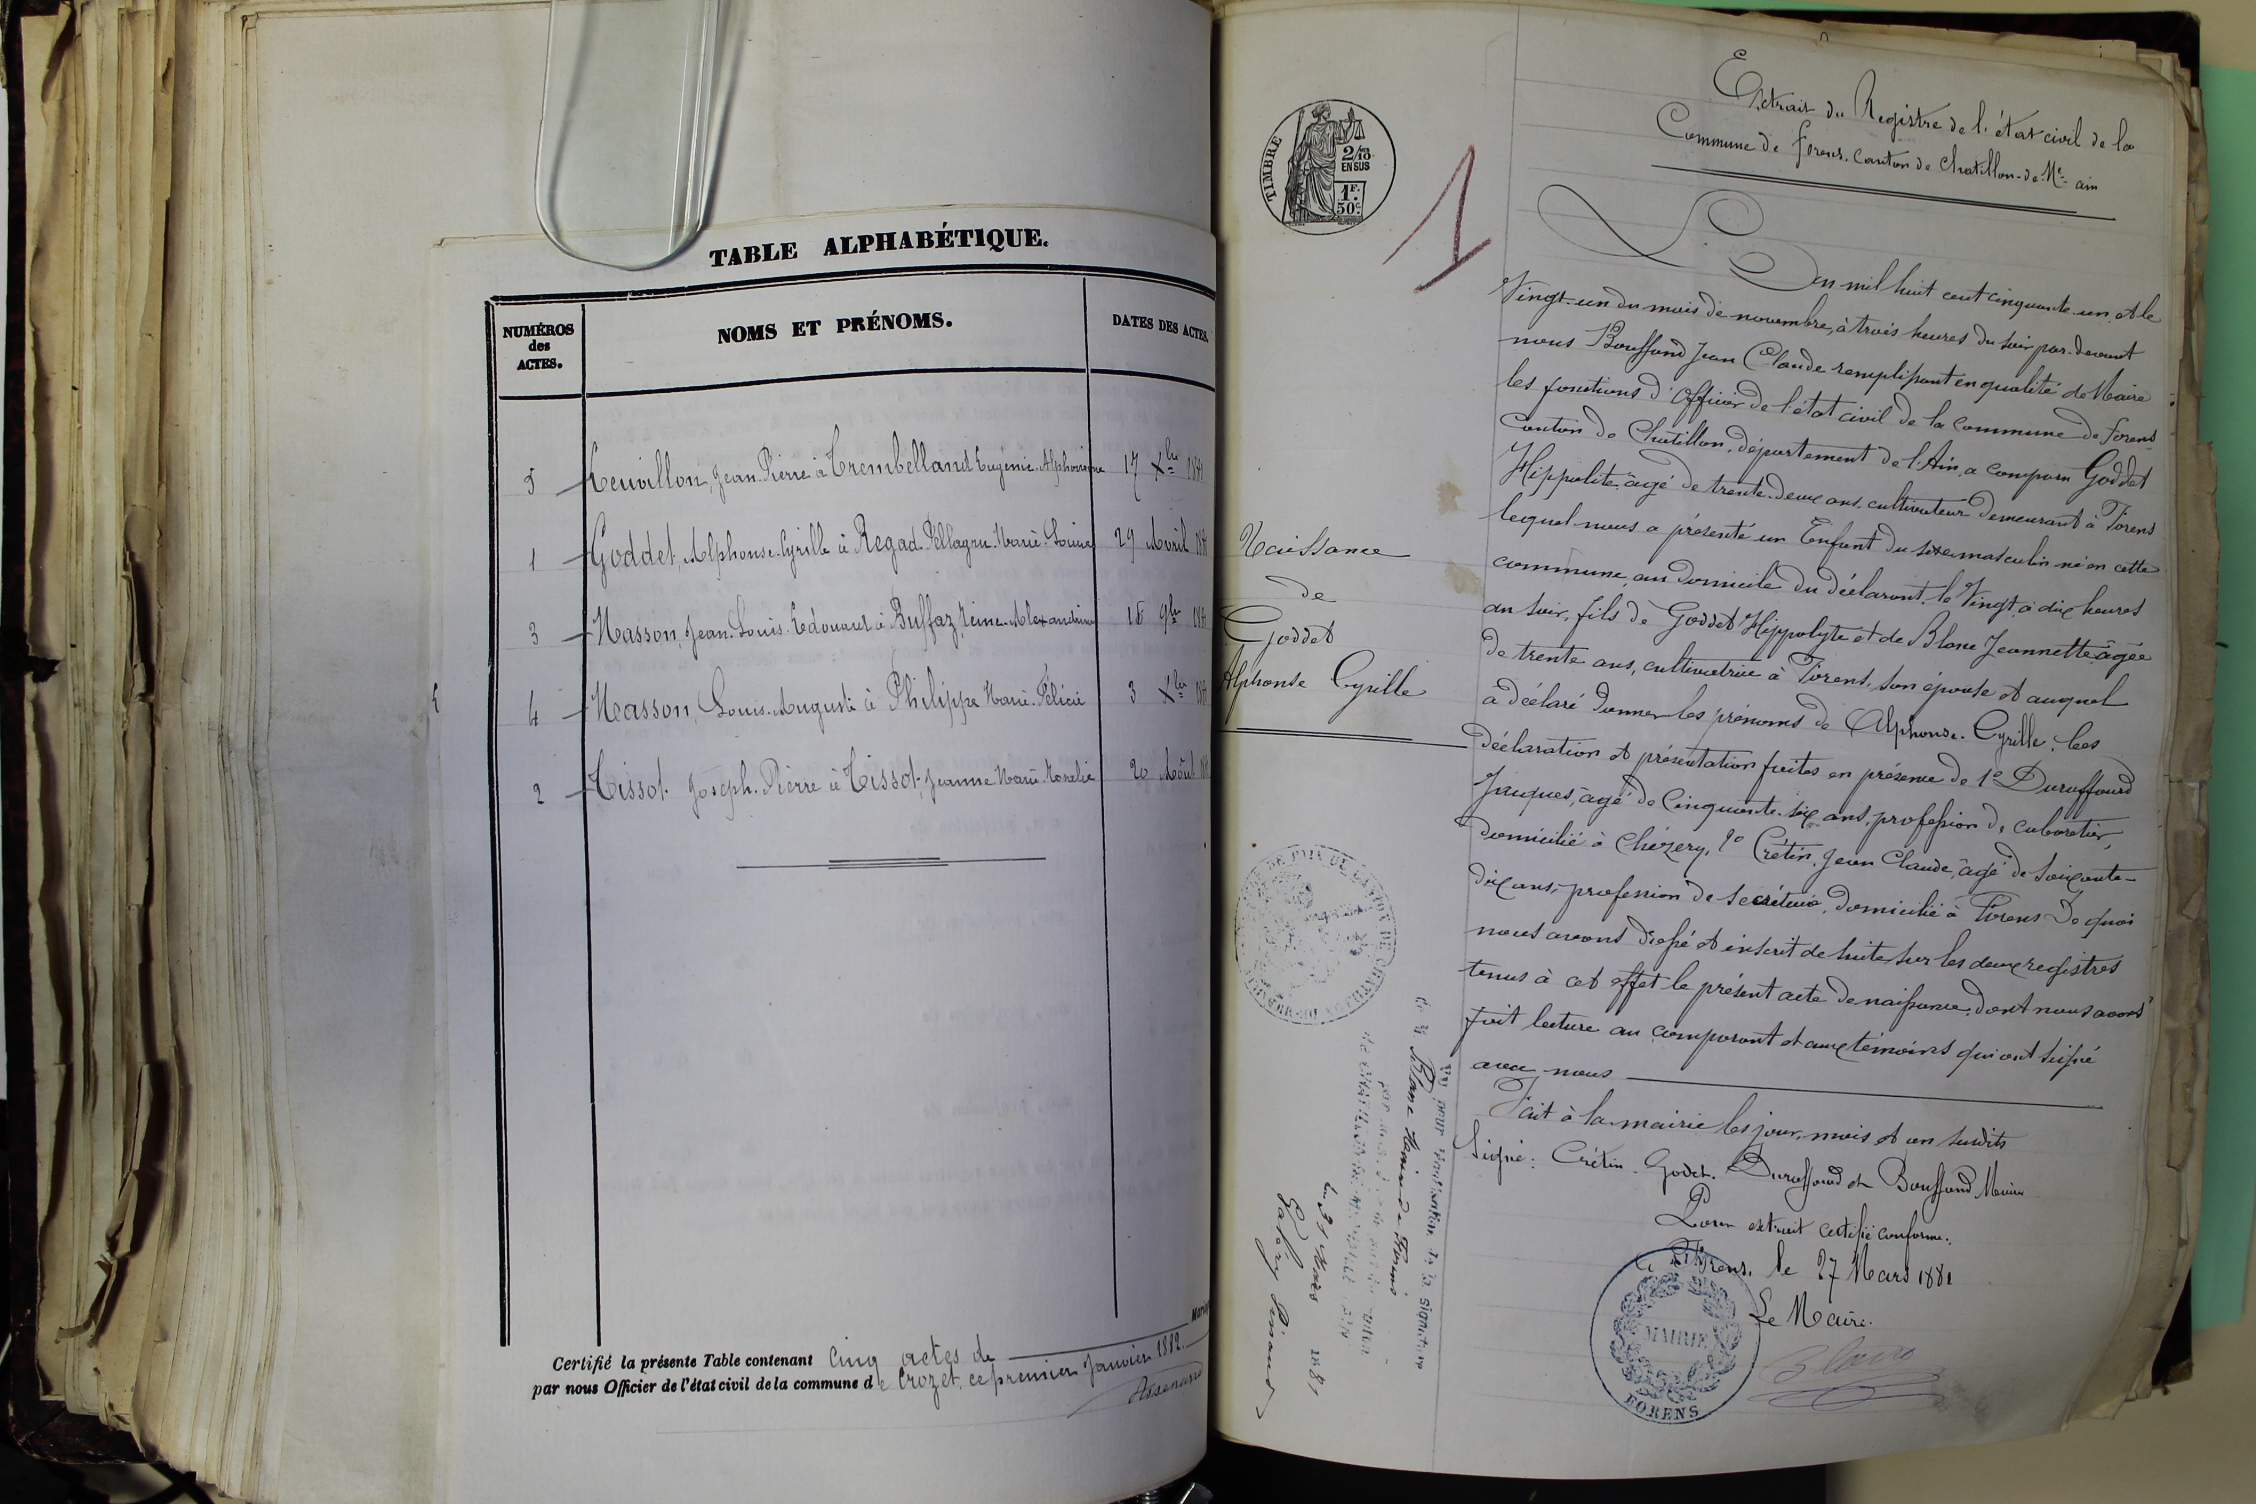 TABLE ALPHABÉTIQUE.
NUMÉROS
des
ACTES.
NOMS ET PRÉNOMS.
DATES DES ACTES.
5 Jean Pierre à Trembelland Eugénie Alphonsine 17 Xbre 1881
1 Goddet, Alphonse Cyrille à Regad Pellagru Marie Louise 29 Avril 188
3 Masson, Jean Louis Edouard à Buffaz, Reine Alexandrine 18 9bre 188
4 Masson, Louis Auguste à Philippe Marie Félicie 3 Xbre 188
2 Tissot Joseph Pierre à Tissot, Jeanne Marie 20 Août 188
Certifié la présente Table contenant cinq actes de
par nous Officier de l'état civil de la commune de Crozet, ce premier Janvier 1882.
TIMBRE
2/10
EN SUS
1F.
50c.
1
Extrait du Registre de l'état civil de la
Commune de Forens, canton de Chatillon-de-Mle ain
Naissance
de
Goddet
Alphonse Cyrille
L'an mil huit cent cinquante un et le
Vingt-un du mois de novembre, à trois heures du soir par-devant
nous Bouffand Jean Claude remplissant en qualité de Maire
les fonctions d'Officier de l'état civil de la commune de Forens
Canton de Chatillon, département de l'Ain, a comparu Goddet
Hippolite, âgé de trente-deux ans, cultivateur demeurant à Forens
lequel nous a présenté un Enfant du sexe masculin né en cette
commune, au domicile du déclarant, le Vingt à dix heures
du soir, fils de Goddet Hippolyte et de Blanc Jeannette âgée
de trente ans, cultivatrice à Forens, son épouse et auquel
a déclaré donner les prénoms de Alphonse Cyrille, les
déclaration et présentation faites en présence de 1o Duraffourd
Jacques, âgé de Cinquante-six ans, profession de cabaretier,
domicilié à Chézery, 2o Crétin, Jean Claude, âgé de soixante-
dix ans, profession de secrétaire, domicilié à Forens De quoi
nous avons dressé et inscrit de suite sur les deux registres
tenus à cet effet le présent acte de naissance, dont nous avons
fait lecture au comparant et aux témoins qui ont signé
avec nous
Fait à la mairie les jour, mois et an susdits
Signé: Crétin. Godet. Duraffourd et Bouffand Maire
Pour extrait certifié conforme.
à Forens, le 27 Mars 1881
Le Maire.
Blanc
MAIRIE
FORENS
Vu pour légalisation de la signature
de M. Blanc Maire de Forens
le 31 Mars 1881